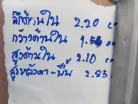 ลึกด้านใน 2.20
กว้างด้านใน 1.50
สูงด้านใน 2.10
สูงหลังคา-พื้น 2.93